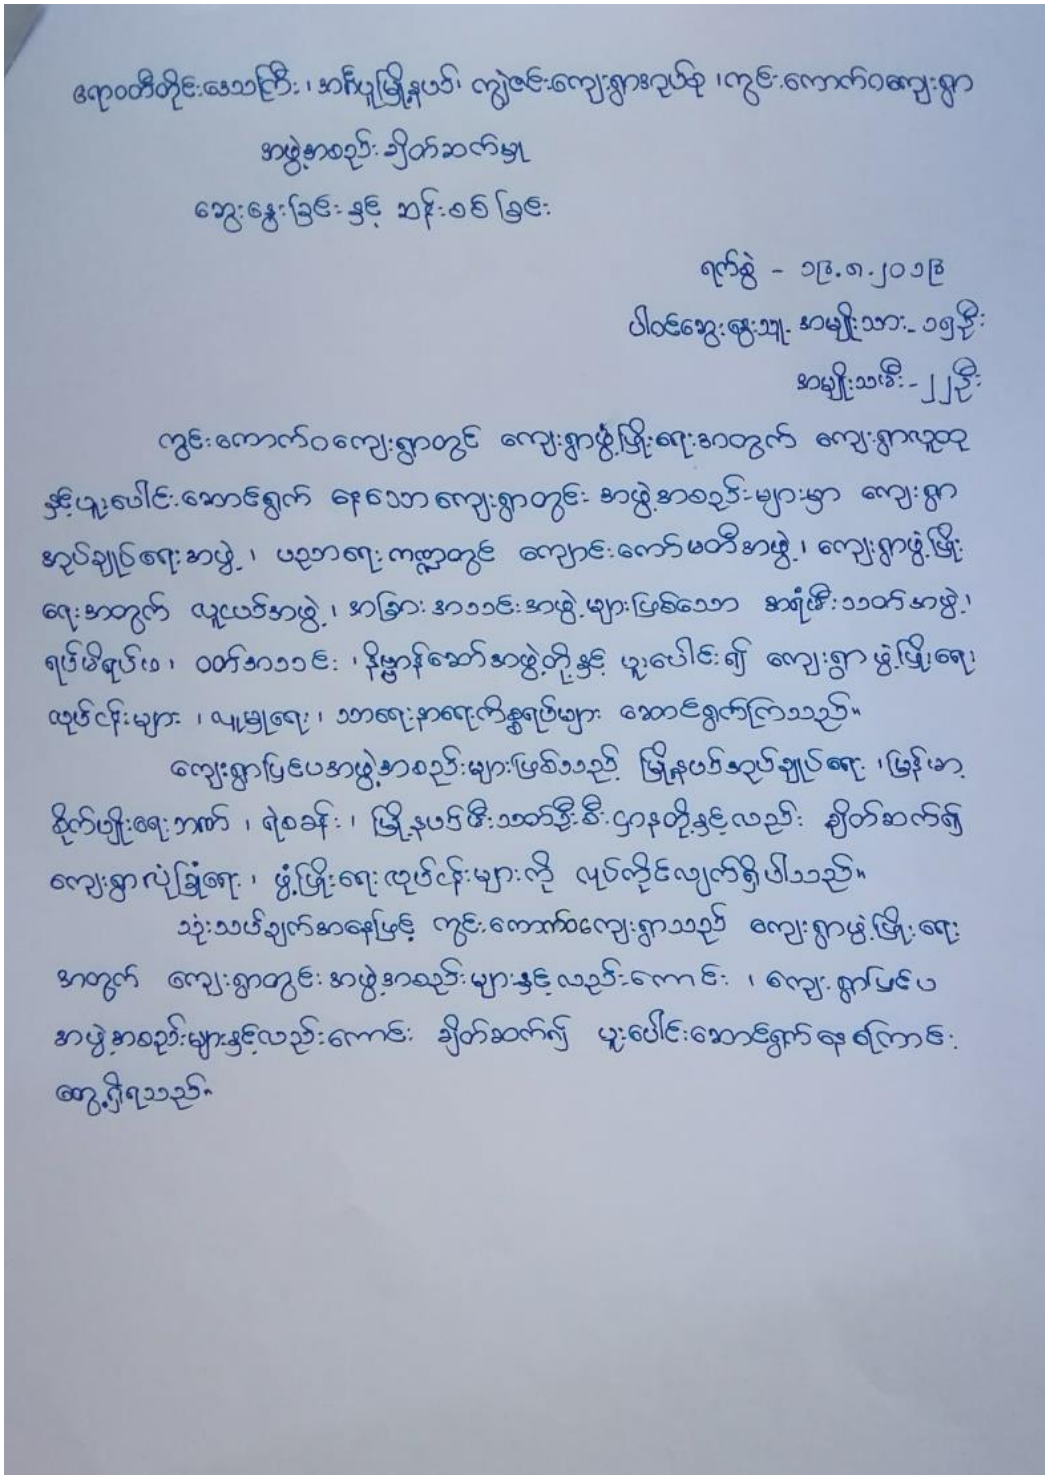 ဧရာဝတီတိုင်းဒေသကြီး၊ အင်္ဂပူမြို့နယ်၊ ကျွဲဇင်းကျေးရွာအုပ်စု ၊ ကွင်းကောက်ဝကျေးရွာ
အဖွဲ့အစည်း ချိတ်ဆက်မှု
ဆွေးနွေးခြင်း နှင့် ဆန်းစစ်ခြင်း
ရက်စွဲ - ၁၆.၈.၂၀၁၆
ပါဝင်ဆွေးနွေးသူ- အမျိုးသား- ၁၅ဦး
အမျိုးသမီး-၂၂ဦး
ကွင်းကောက်ဝကျေးရွာတွင် ကျေးရွာဖွံ့ဖြိုးရေးအတွက် ကျေးရွာလူထု
နှင့်ပူးပေါင်းဆောင်ရွက် နေသော ကျေးရွာတွင်း အဖွဲ့အစည်းများမှာ ကျေးရွာ
အုပ်ချုပ်ရေးအဖွဲ့၊ ပညာရေးကဏ္ဍတွင် ကျောင်းကော်မတီအဖွဲ့၊ ကျေးရွာဖွံ့ဖြိုး
ရေးအတွက် လူငယ်အဖွဲ့၊ အခြားအသင်းအဖွဲ့များဖြစ်သော အရံမီးသတ်အဖွဲ့၊
ရပ်မိရပ်ဖ၊ ဝတ်အသင်း ၊ နိဗ္ဗာန်ဆော်အဖွဲ့တို့နှင့် ပူးပေါင်း၍ ကျေးရွာဖွံ့ဖြိုးရေး
လုပ်ငန်းများ ၊ လူမှုရေး ၊ သာရေးနာရေးကိစ္စရပ်များ ဆောင်ရွက်ကြသည်။
ကျေးရွာပြင်ပအဖွဲ့အစည်းများဖြစ်သည့် မြို့နယ်အုပ်ချုပ်ရေး ၊ မြန်မာ့
စိုက်ပျိုးရေးဘဏ် ၊ ရဲစခန်း ၊ မြို့နယ်မီးသတ်ဦးစီးဌာနတို့နှင့်လည်း ချိတ်ဆက်၍
ကျေးရွာလုံခြုံရေး ၊ ဖွံ့ဖြိုးရေးလုပ်ငန်းများကို လုပ်ကိုင်လျက်ရှိပါသည်။
သုံးသပ်ချက်အနေဖြင့် ကွင်းကောက်ဝကျေးရွာသည် ကျေးရွာဖွံ့ဖြိုးရေး
အတွက် ကျေးရွာတွင်းအဖွဲ့အစည်းများနှင့်လည်းကောင်း ၊ ကျေးရွာပြင်ပ
အဖွဲ့အစည်းများနှင့်လည်းကောင်း ချိတ်ဆက်၍ ပူးပေါင်းဆောင်ရွက်နေကြောင်း
တွေ့ရှိရသည်။